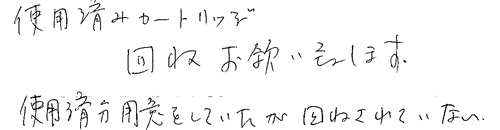 使用済みカートリッジ
回収お願い致します。
使用済分用意をしていたが回収されていない。